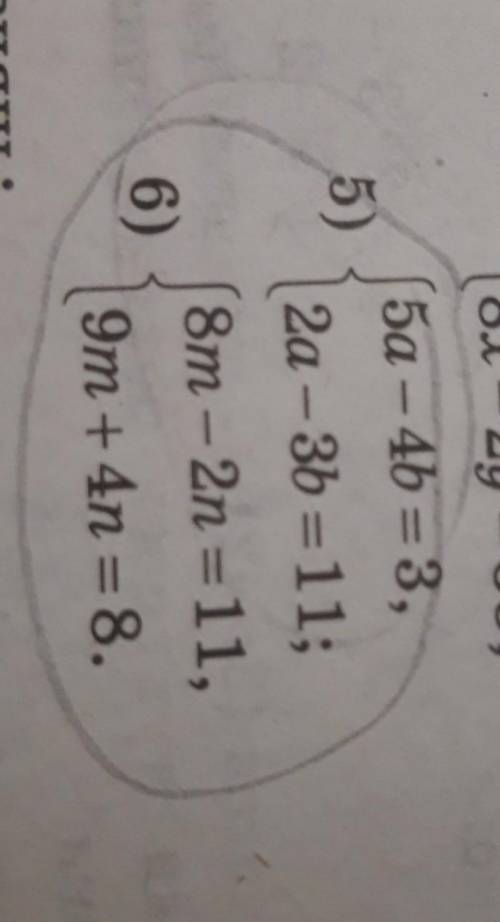 5) { 5a − 4b = 3,
2a − 3b = 11;
6) { 8m − 2n = 11,
9m + 4n = 8.